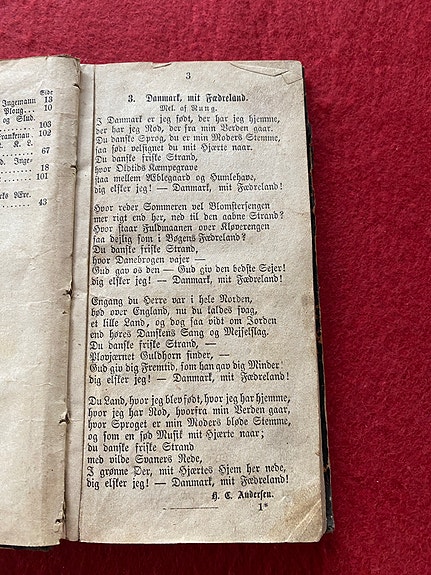 Side
Ingemann 13
Ploug... 10
og Slud.
103
Frankenau. 102
t. K. L.
67
d. Inge-
18
101
rks Ære.
43
3
3. Danmark, mit Fædreland.
Mel. af Rung.
I Danmark er jeg født, der har jeg hjemme,
der har jeg Rod, der fra min Verden gaar.
Du danske Sprog, du er min Moders Stemme,
saa sødt velsignet du mit Hjærte naar.
Du danske friske Strand,
hvor Oldtids Kæmpegrave
staa mellem Æblegaard og Humlehave,
dig elsker jeg! — Danmark, mit Fædreland!
Hvor reder Sommeren vel Blomstersengen
mer rigt end her, ned til den aabne Strand?
Hvor staar Fuldmaanen over Kløverengen
saa dejlig som i Bøgens Fædreland?
Du danske friske Strand,
hvor Danebrogen vajer —
Gud gav os den — Gud giv den bedste Sejer!
dig elsker jeg! — Danmark, mit Fædreland!
Engang du Herre var i hele Norden,
bød over England, nu du kaldes svag,
et lille Land, og dog saa vidt om Jorden
end høres Danskens Sang og Mejselslag.
Du danske friske Strand, —
Plovjærnet Guldhorn finder, —
Gud giv dig Fremtid, som han gav dig Minder!
dig elsker jeg! — Danmark, mit Fædreland!
Du Land, hvor jeg blev født, hvor jeg har hjemme,
hvor jeg har Rod, hvorfra min Verden gaar,
hvor Sproget er min Moders bløde Stemme,
og som en sød Musik mit Hjærte naar;
du danske friske Strand
med vilde Svaners Rede,
I grønne Øer, mit Hjærtes Hjem her nede,
dig elsker jeg! — Danmark, mit Fædreland!
H. C. Andersen.
1*